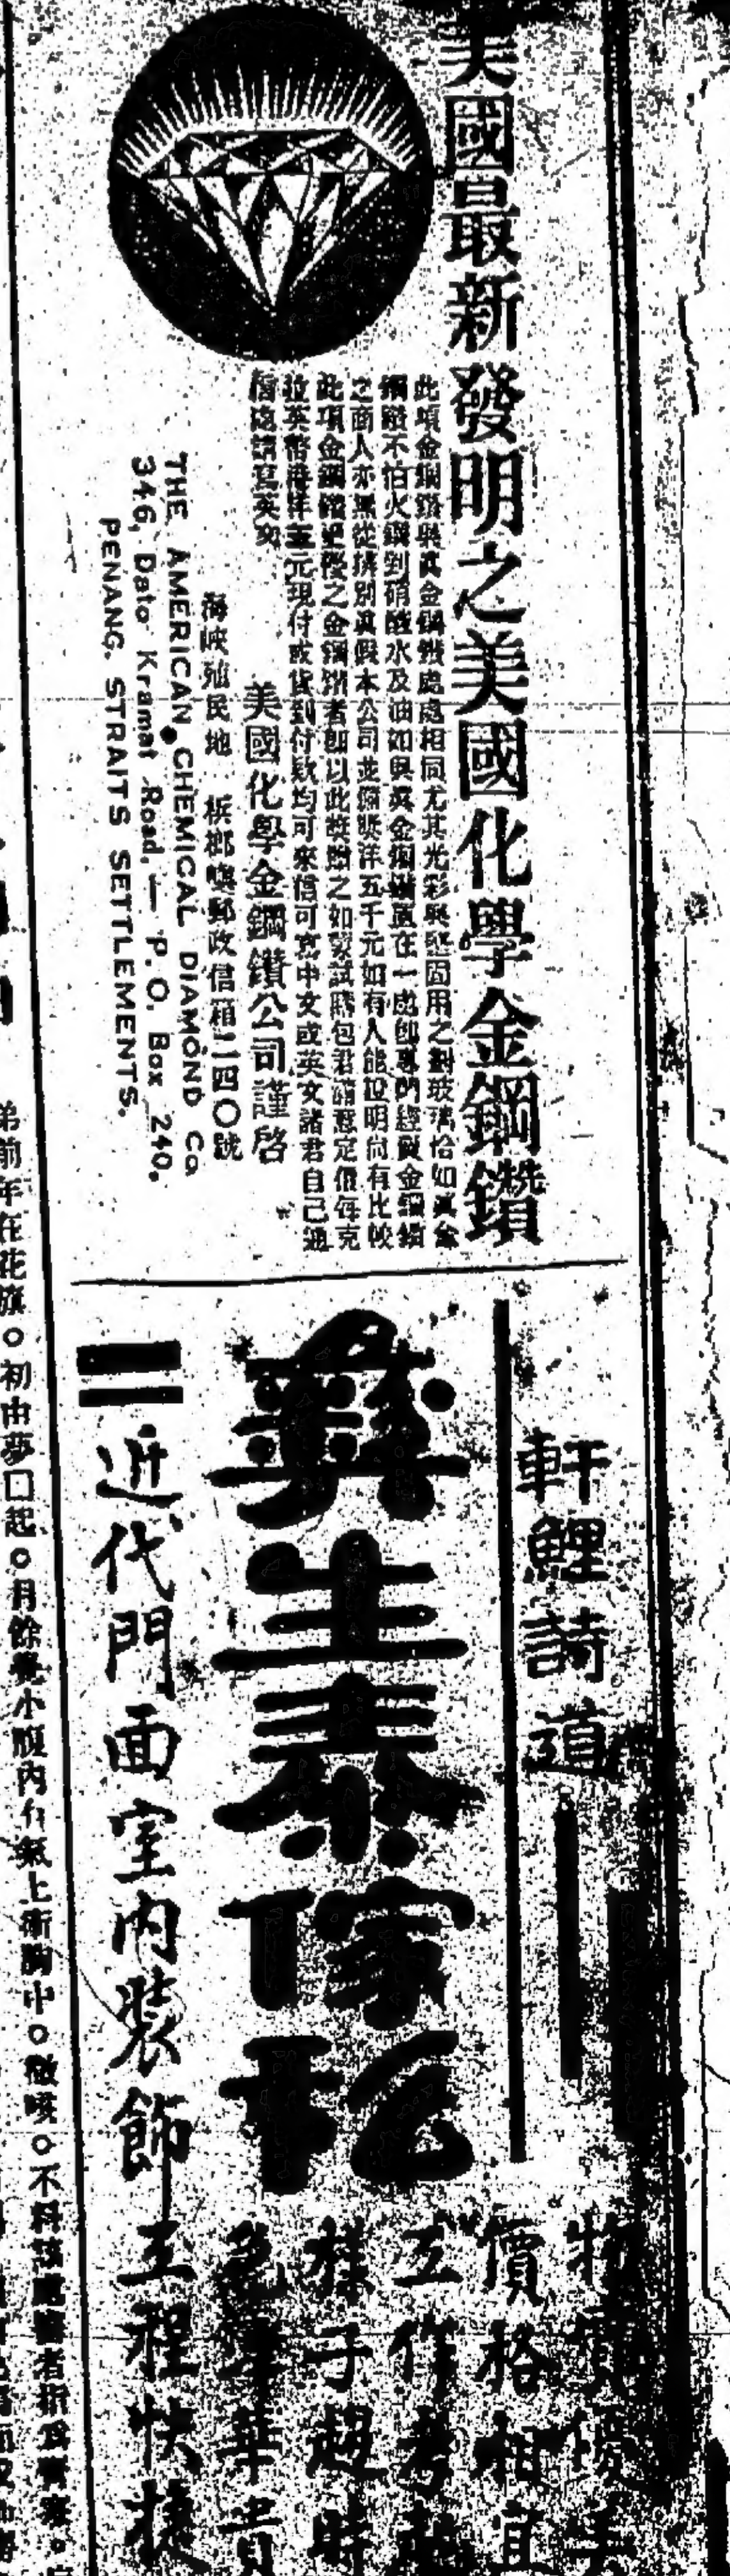 美國最新發明之美國化學金鋼鑽
此項金鋼鑽與眞金鋼鑽處處相同尤其光彩與堅固用之劃玻璃恰如眞金
鋼鑽不怕火鑽到硝酸水及油如與眞金鋼鑽置在一處卽專門經驗金鋼鑽
之商人亦無從辨別眞假本公司並備獎洋五千元如有人能證明尙有比較
此項金鋼鑽更優之金鋼鑽者卽以此獎贈之如蒙試購包君滿意定價每克
拉英幣海洋 元現付或貨到付欵均可來信可寫中文或英文諸君自己通
信處請寫英文
美國化學金鋼鑽公司謹啓
海峽殖民地 檳榔嶼郵政信箱二四〇號
THE AMERICAN CHEMICAL DIAMOND Co.
346, Dato Kramat Road, — P. O. Box 240.
PENANG. STRAITS SETTLEMENTS.
軒鯉詩道
彝生泰
傢俬
物質優美
價格相宜
工作考
樣子趨時
色澤華貴
近代門面室內裝飾
工程快捷
弟前年在花旗。初由夢口起。月餘覺小腹內有氣上衝胸中。微咳。不料該處醫者指爲